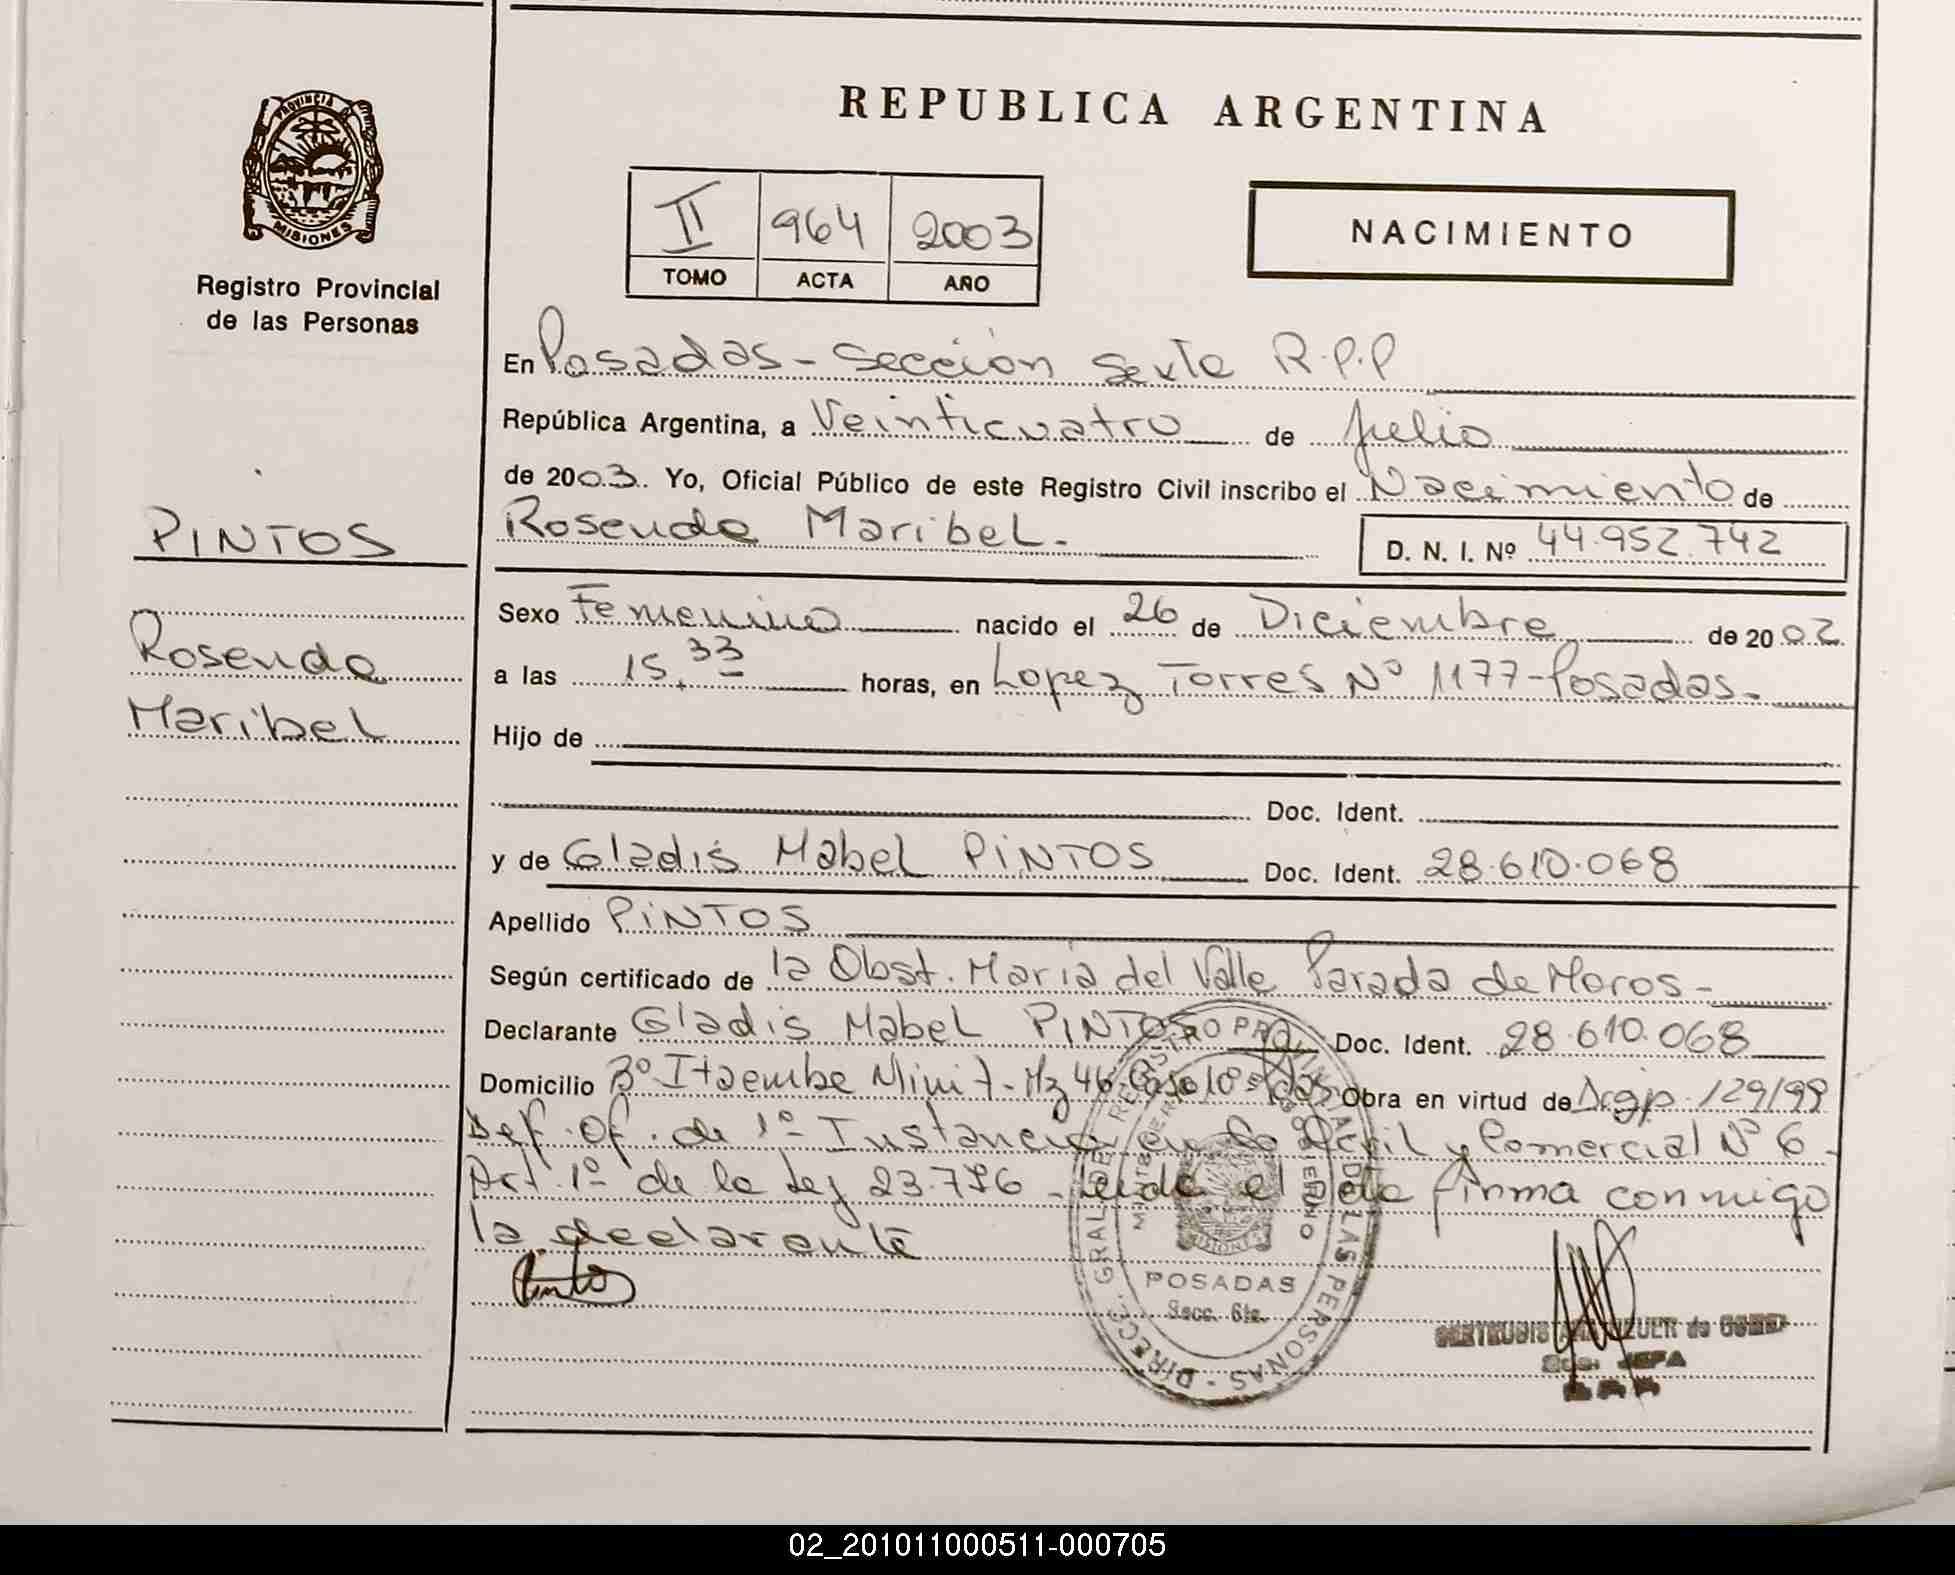 REPUBLICA ARGENTINA
PROVINCIA
MISIONES
Registro Provincial
de las Personas
II 964 2003
TOMO ACTA AÑO
NACIMIENTO
En Posadas - Sección Sexta R.P.P
República Argentina, a Veinticuatro de Julio
de 2003. Yo, Oficial Público de este Registro Civil inscribo el Nacimiento de
Rosenda Maribel.
D. N. I. Nº 44.952.742
PINTOS
Rosenda
Maribel
Sexo Femenino nacido el 26 de Diciembre de 2002
a las 15.33 horas, en Lopez Torres Nº 1177 - Posadas.
Hijo de
Doc. Ident.
y de Gladis Mabel PINTOS Doc. Ident. 28.610.068
Apellido PINTOS
Según certificado de la Obst. Maria del Valle Parada de Moros -
Declarante Gladis Mabel PINTOS Doc. Ident. 28.610.068
Domicilio Bº Itaembe Mini - Mz 46 Casa 10 Obra en virtud de 129/99
Def. Of. de 1º Instancia en lo Civil y Comercial Nº 6 -
Art. 1º de la Ley 23.776 - Leida el acta firma conmigo
la declarante
Pintos
DIRECC. GRAL. DEL REGISTRO PROVINCIAL DE LAS PERSONAS
MINISTERIO DE GOBIERNO
MISIONES
POSADAS
Secc. 6ta.
GERTRUDIS de
JEFA
02_201011000511-000705